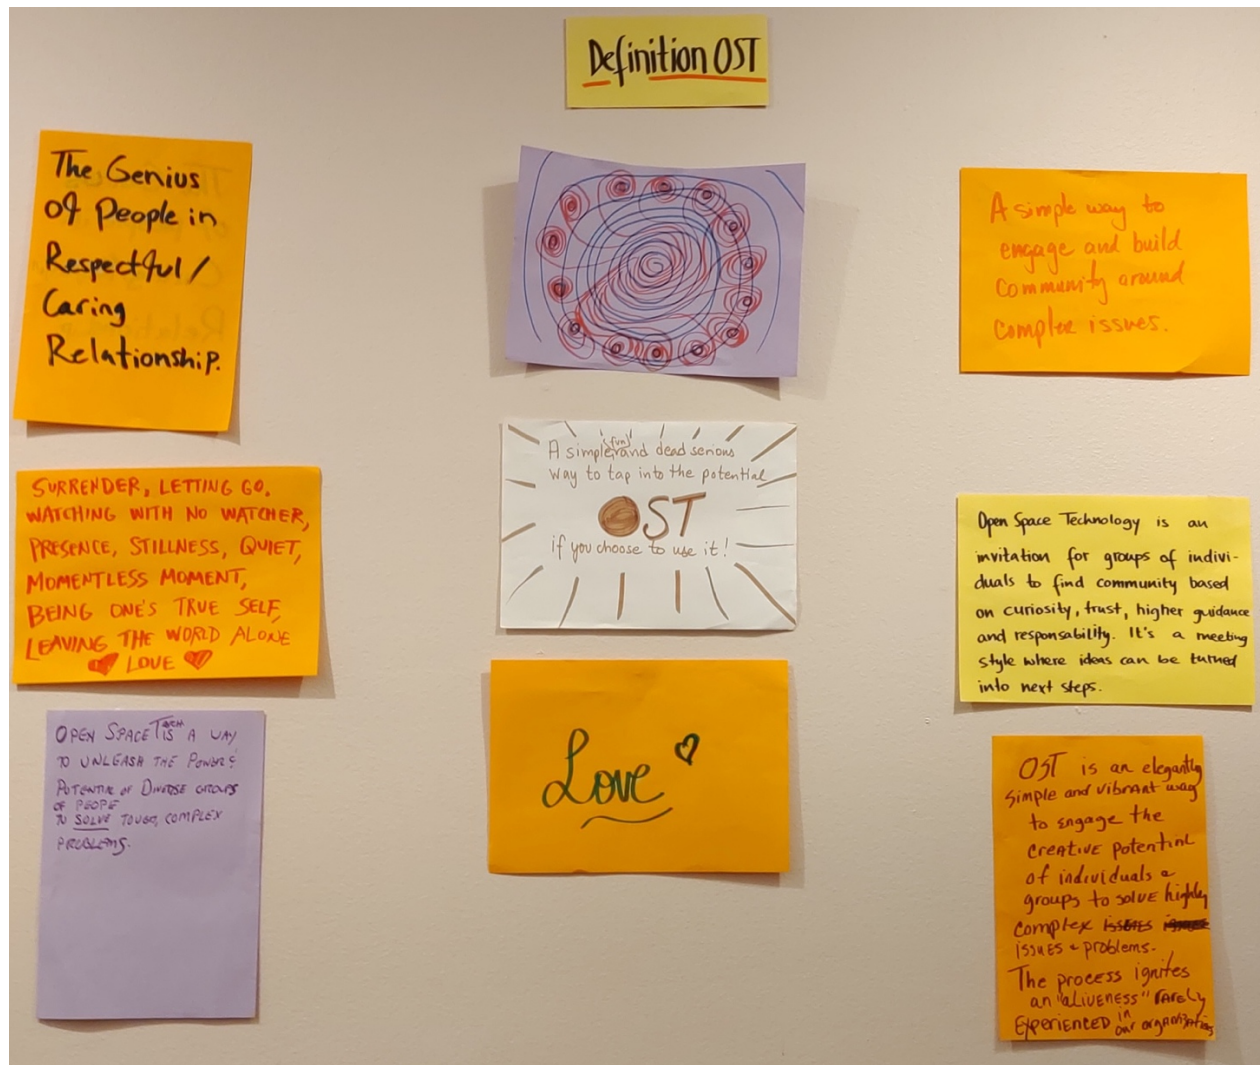 Definition OST
The Genius
of People in
Respectful/
Caring
Relationship.
SURRENDER, LETTING GO.
WATCHING WITH NO WATCHER,
PRESENCE, STILLNESS, QUIET,
MOMENTLESS MOMENT,
BEING ONE'S TRUE SELF,
LEAVING THE WORLD ALONE
LOVE
OPEN SPACE TECH IS A WAY
TO UNLEASH THE POWER &
POTENTIAL OF DIVERSE GROUPS
OF PEOPLE
TO SOLVE TOUGH, COMPLEX
PROBLEMS.
A simple (fun) and dead serious
way to tap into the potential
OST
if you choose to use it!
Love
A simple way to
engage and build
community around
complex issues.
Open Space Technology is an
invitation for groups of indivi-
duals to find community based
on curiosity, trust, higher guidance
and responsability. It's a meeting
style where ideas can be turned
into next steps.
OST is an elegantly
simple and vibrant way
to engage the
creative potential
of individuals &
groups to solve highly
complex issues
issues & problems.
The process ignites
an "aliveness" rarely
Experienced in
our organizations